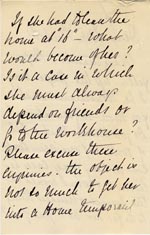 If she had to leave the
home at "16" – what
would become of her?
Is it a case in which
she must always
depend on friends or
go to the Workhouse?
Please excuse these
enquiries: the object is
not so much to get her
into a Home temporarily